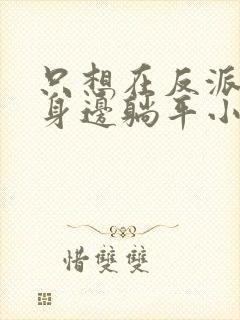 只想在反派
身邊躺平小
惜雙雙